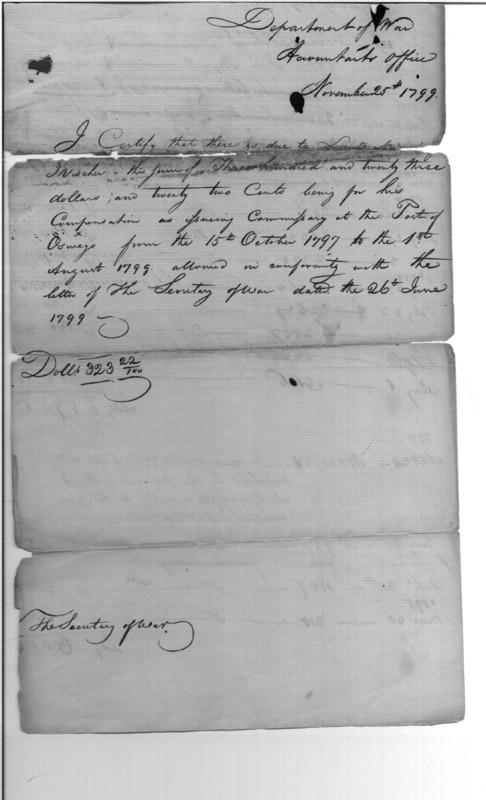 Department of War
Accountants Office
November 25th 1799.
I Certify that there is due to
Visscher - the sum of Three hundred and twenty three
dollars, and twenty two Cents being for his
Compensation as issuing Commissary at the Post of
Oswego from the 15th October 1797 to the 1st
August 1799. allowed in conformity with the
letter of The Secretary of War dated the 26th June
1799
Dolls 323 22/100
The Secretary of War.